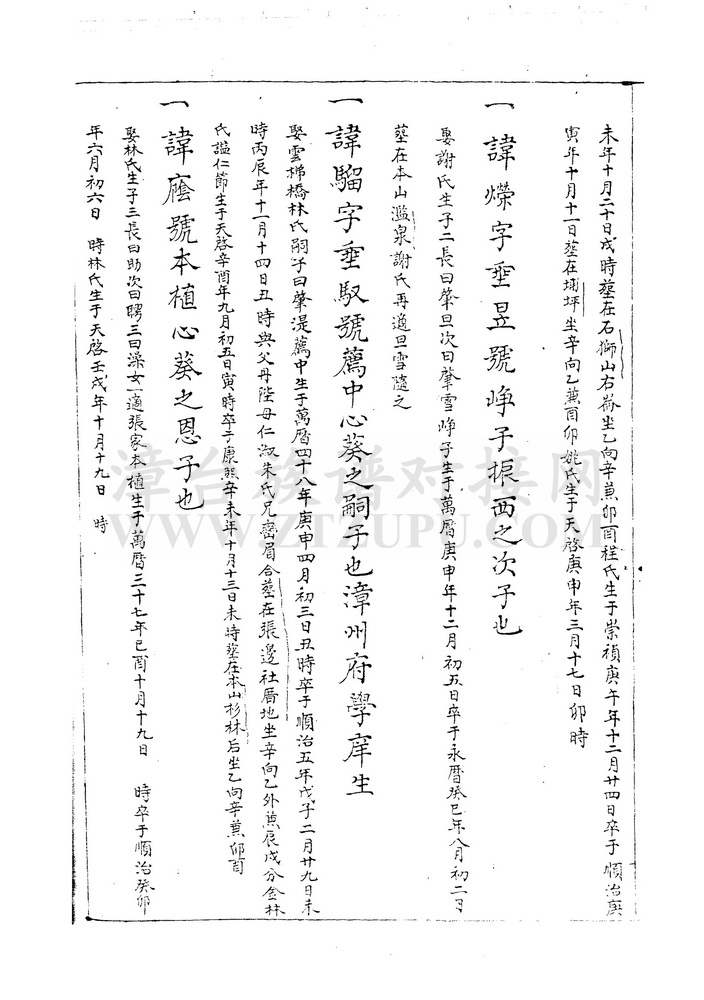 未年十月二十日戌時塟在石獅山右崙坐乙向辛兼卯酉程氏生于崇禎庚午年十二月廿四日卒于順治庚
寅年十月十一日塟在埔坪坐辛向乙兼酉卯姚氏生于天啓庚申年三月十七日卯時
一諱爃字垂昱號崢子振西之次子也
娶謝氏生子二長曰肇旦次曰肇雪崢子生于萬曆庚申年十二月初五日卒于永曆癸巳年八月初二日
塟在本山濫泉謝氏再適旦雪隨之
一諱騮字垂馭號薦中心葵之嗣子也漳州府學庠生
娶雲梯橋林氏嗣子曰肇湜薦中生于萬曆四十八年庚申四月初三日丑時卒于順治五年戊子二月廿九日未
時丙辰年十一月十四日丑時與父丹陛母仁淑朱氏兄巒眉合塟在張邊社厝地坐辛向乙外兼辰戌分金林
氏謚仁節生于天啓辛酉年九月初五日寅時卒于康熙辛未年十月十三日未時塟在本山杉林后坐乙向辛兼卯酉
一諱廕號本植心葵之恩子也
娶林氏生子三長曰助次曰騁三曰澡女一適張家本植生于萬曆三十七年己酉十月十九日 時卒于順治癸卯
年六月初六日 時林氏生于天啓壬戌年十月十九日 時
漳台族谱对接网
WWW.ZTZUPU.COM